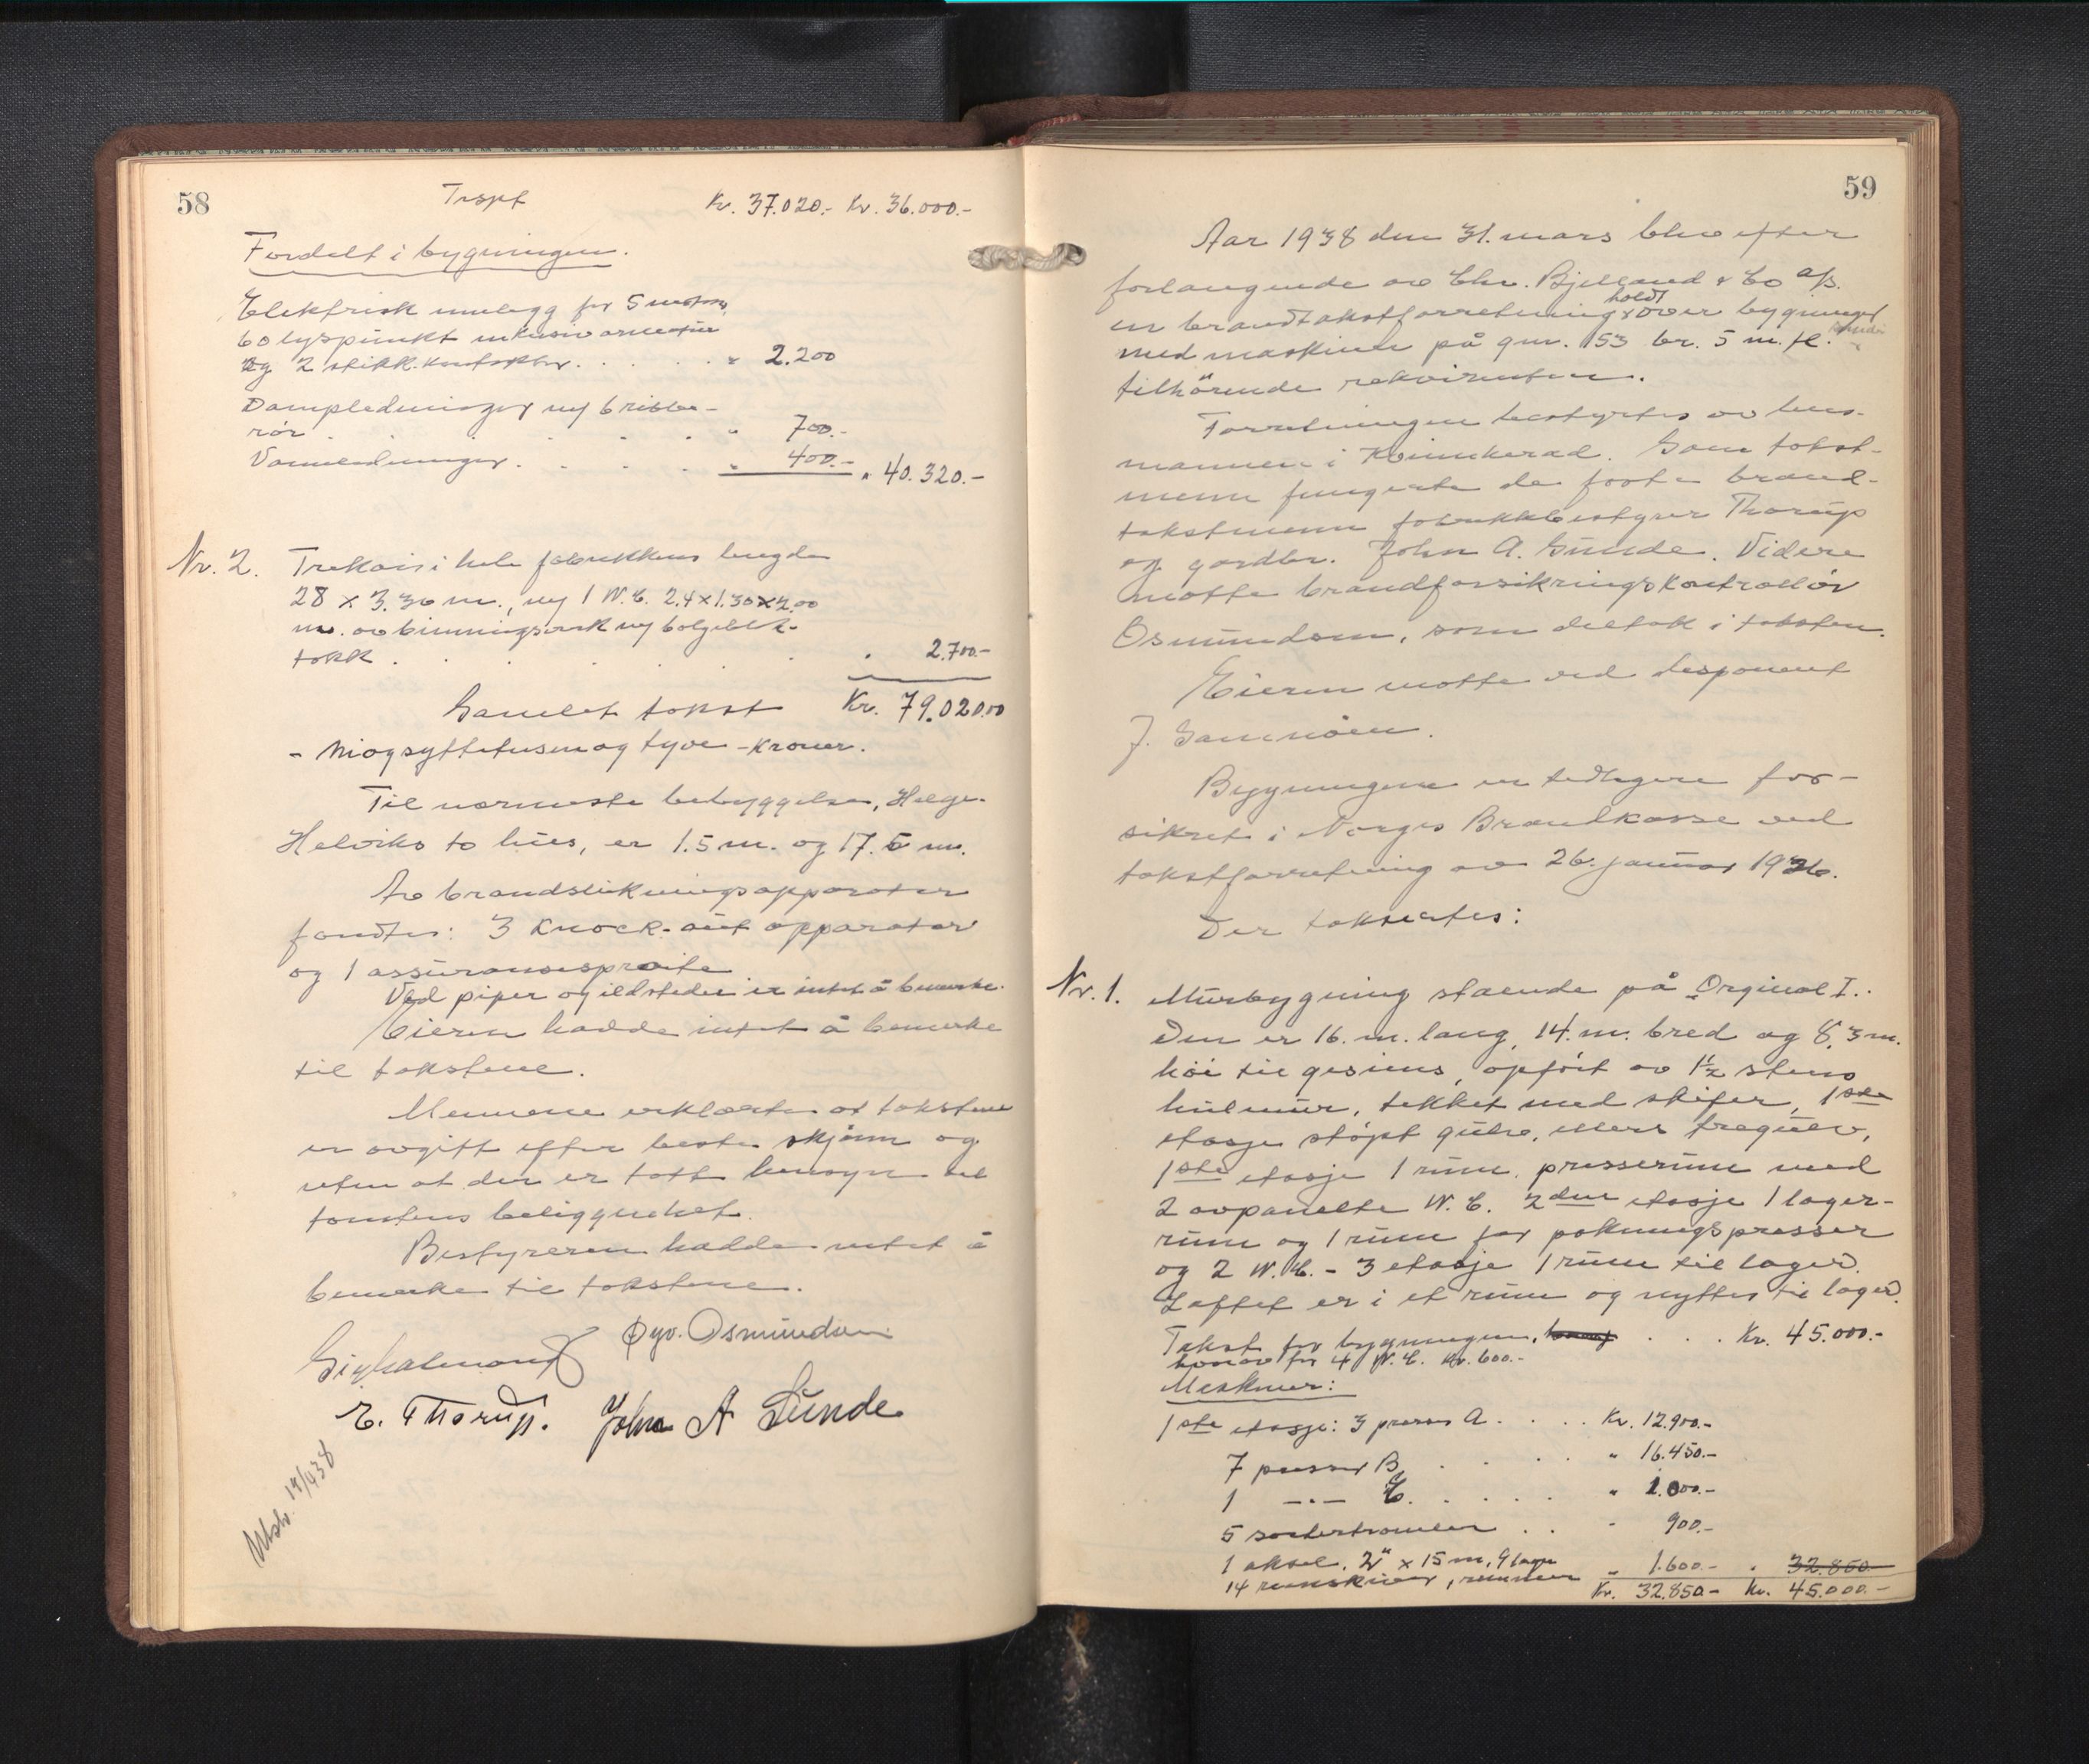 58
Trspt Kr. 37.020.- Kr. 36.000.-
Fordelt i bygningen.
Elektrisk innlegg for 5 motorer,
60 lyspunkt inklusiv armatur
og 2 stikk.kontakter . . . . " 2.200
Dampledninger
rör . . . . . . " 700.-
Vannledninger . . . . " 400.- " 40.320.-
Nr. 2. Trekai i hele fabrikkens lengde
28 x 3.30 m., 1 W.C. 2.4 x 1.30 x 2.00
m. av binningsverk bolgeblik-
takk . . . . . . " 2.700.-
Samlet takst Kr. 79.020.00
- Niogsyttitusenogtyve - kroner.
Til nærmeste bebyggelse, Helge
Helviks to hus, er 1.5 m. og 17.5 m.
Av brandslukningsapparater
fandtes: 3 Knock-out apparater
og 1 assuransesprøite
Ved piper og ildsteder er intet å bemerke.
Eieren hadde intet å bemerke
til takstene.
Mennene erklærte at takstene
er avgitt efter beste skjönn og
uten at der er tatt hensyn til
tomtens beliggenhet.
Bestyreren hadde intet å
bemerke til takstene.
Øyv. Osmundsen
E. Thorup. John A Sunde
Utskr. 19/4 38
59
Aar 1938 den 31. mars blev efter
forlangende av Chr. Bjelland & Co A/S.
en brandtakstforretning holdt over bygninger
med maskiner på gnr. 153 br. 5 m. fl.
tilhörende rekvirenten.
Forretningen bestyrtes av lens-
mannen i Kvinnherad. Som takst-
menn fungerte de faste brand-
takstmenn fabrikkbestyrer Thorup
og gardbr. John A. Sunde. Videre
møtte brandforsikringskontrollör
Osmundsen, som deltok i taksten.
Eieren møtte ved disponent
J. Samnöen.
Bygningene er tidligere for-
sikret i Norges Brandkasse ved
takstforretning av 26. januar 1926.
Der takseertes:
Nr. 1. Murbygning staende på Orginal I..
Den er 16. m. lang, 14. m. bred og 8.3 m.
höi til gesims, opfört av 1½ stens
hulmur, tekket med skifer, 1ste
etasje stöpt gulv, ellers tregulv,
1ste etasje 1 rum, presserum med
2 avpanelte W.C. 2den etasje 1 lager-
rum og 1 rum for pakningspresser
og 2 W.C. - 3 etasje 1 rum til lager.
Loftet er i et rum og nyttes til lager.
Takst for bygningen, . . . Kr. 45.000.-
herav for 4 W.C. kr. 600.-
Maskiner:
1ste etasje: 3 presser A . . . . Kr. 12.900.-
7 presser B . . . . " 16.450.-
1 -"- C . . . . . " 1.000.-
5 sortertromler . . " 900.-
1 aksel, 2" x 15 m, 9 lager
14 remskiver, remmer " 1.600.- " 32.850
Kr. 32.850.- Kr. 45.000.-